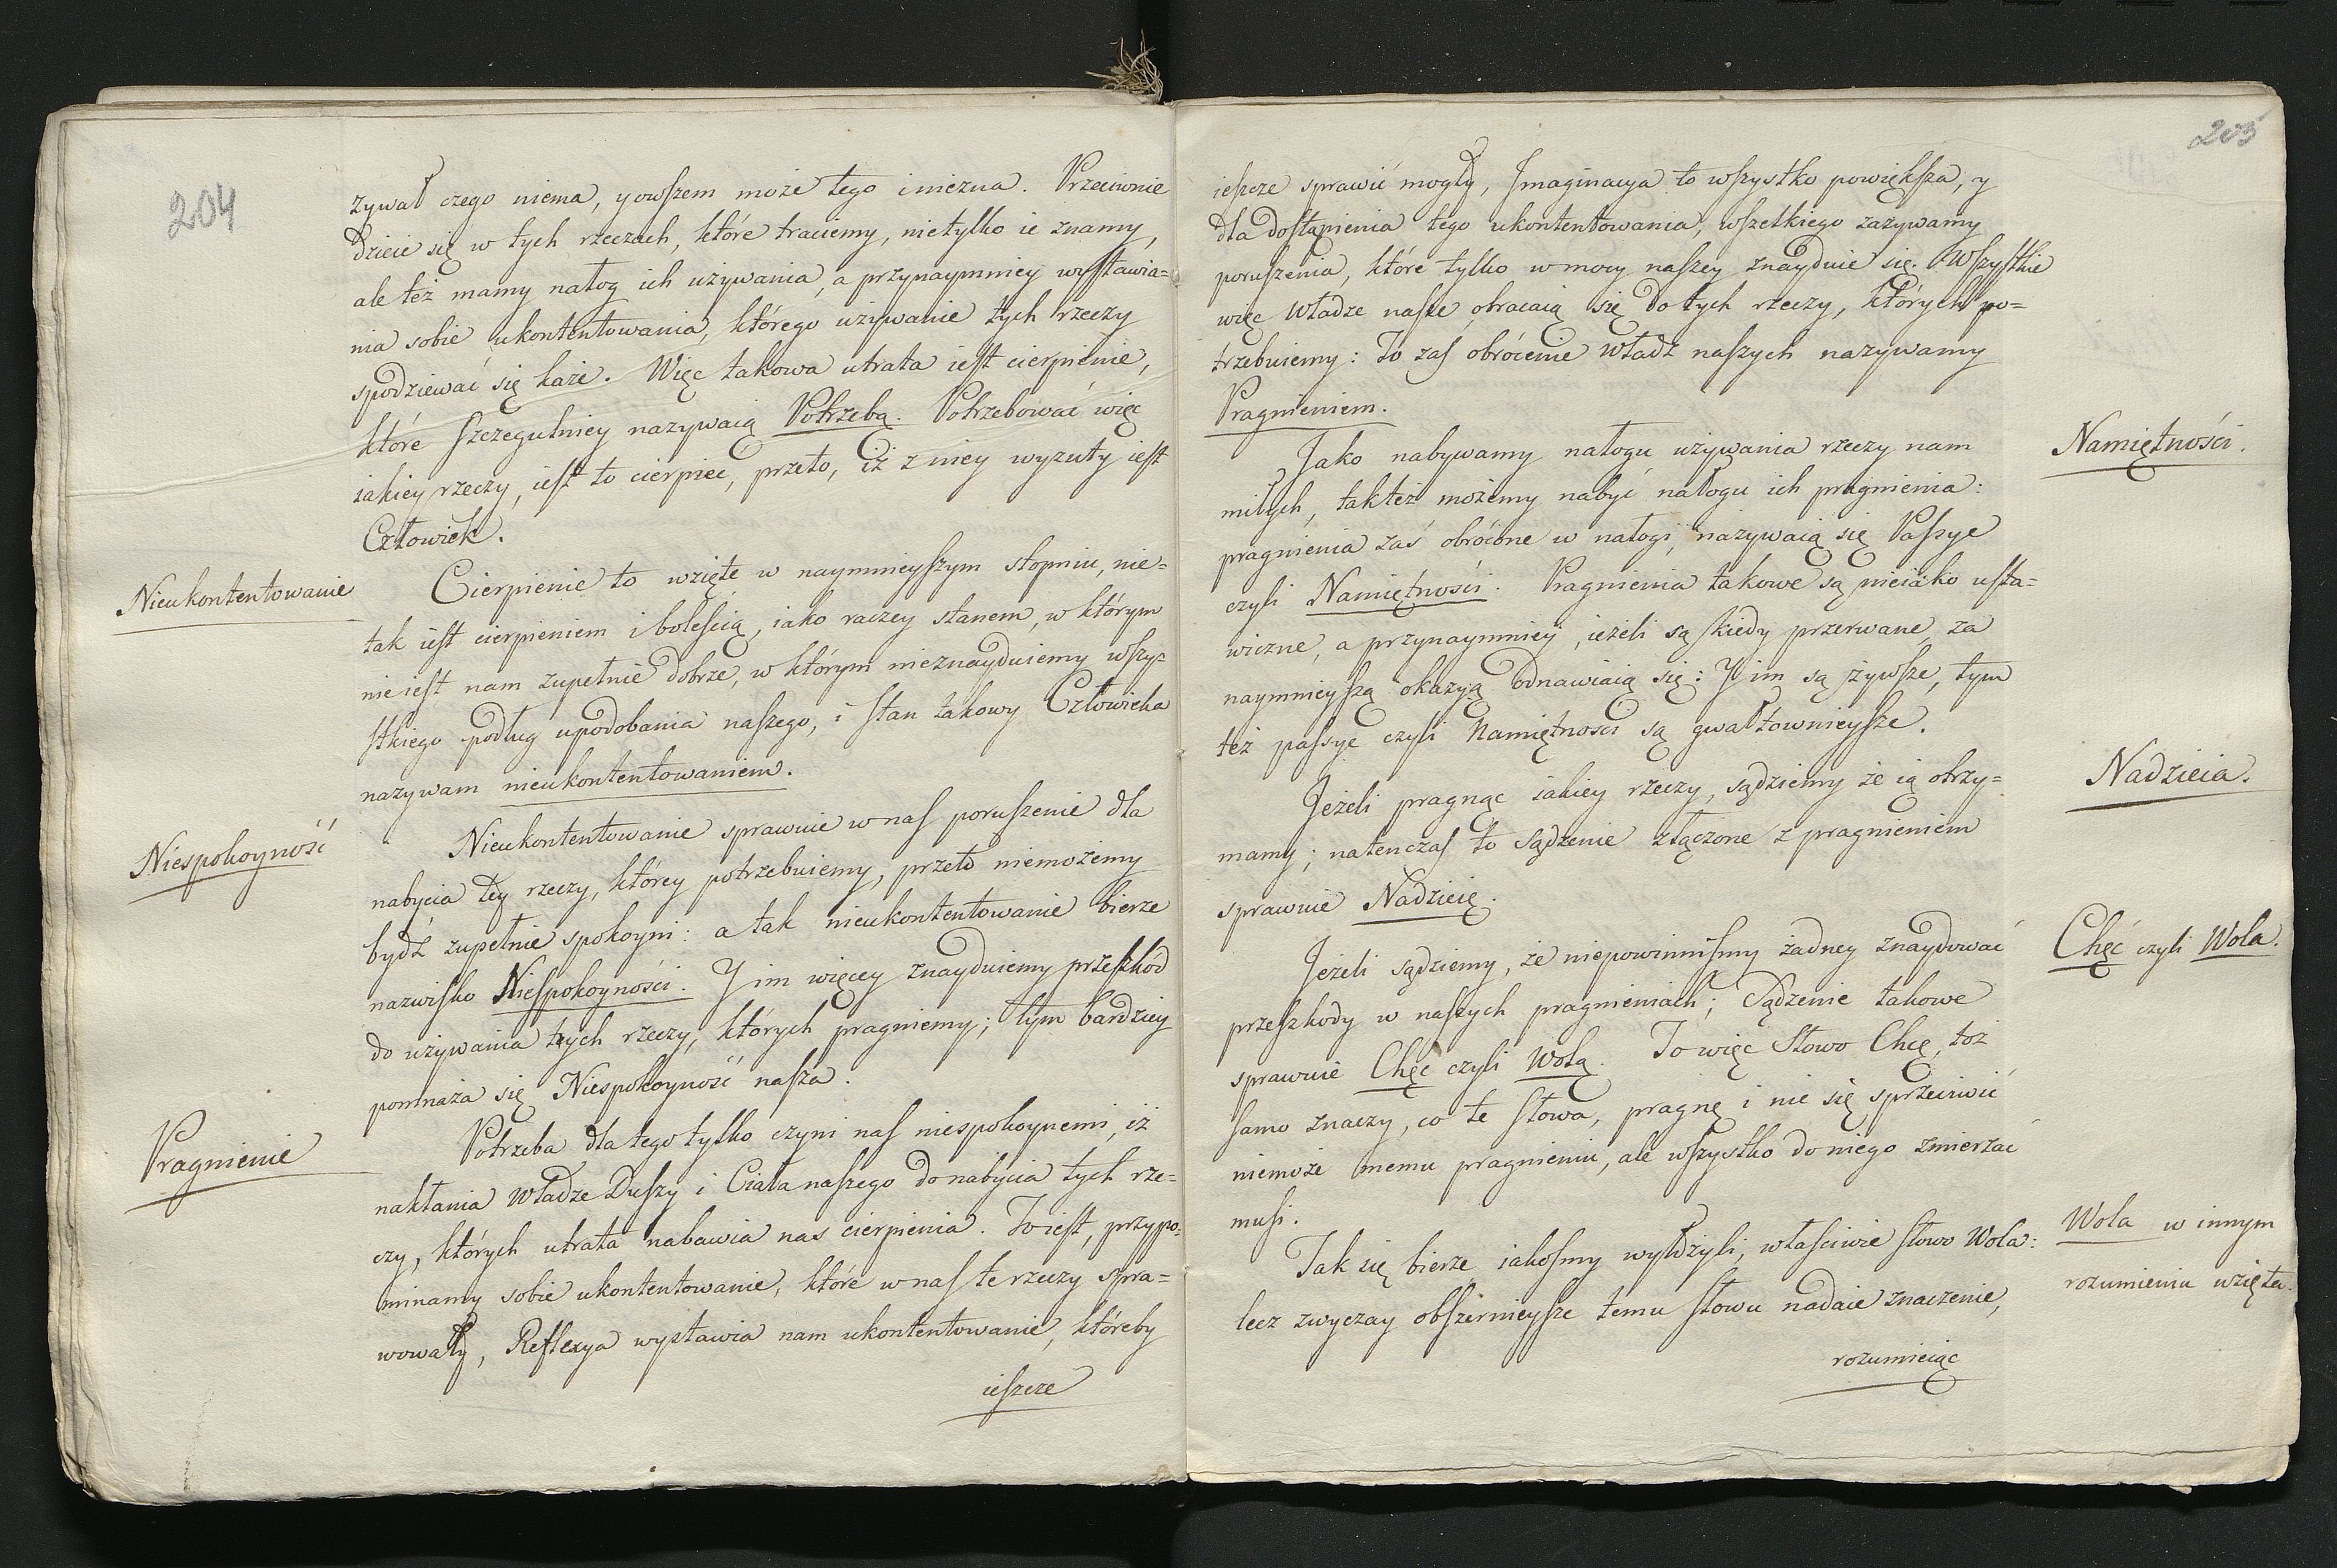 204
zywał czego niema, yowszem może tego i niezna. Przeciwnie
dzieie się w tych rzeczach, które traciemy, nietylko ie znamy,
ale też mamy nałog ich używania, a przynaymniey wystawia=
nia sobie ukontentowania, którego używanie tych rzeczy
spodziewać się każe. Więc takowa utrata iest cierpienie,
które szczegulniey nazywaią Potrzebą. Potrzebować więc
iakiey rzeczy, iest to cierpieć, przeto, iż z niey wyzuty iest
Człowiek.
Nieukontentowanie
Cierpienie to wzięte w naymnieyszym stopniu, nie=
tak iest cierpieniem i boleścią, iako raczey stanem, w którym
nieiest nam zupełnie dobrze, w którym nieznayduiemy wszy=
stkiego podług upodobania naszego, i stan takowy Człowieka
nazywam nieukontentowaniem.
Niespokoyność
Nieukontentowanie sprawuie w nas poruszenie dla
nabycia tey rzeczy, którey potrzebuiemy, przeto niemożemy
bydź zupełnie spokoyni: a tak nieukontentowanie bierze
nazwisko Niespokoyności. Y im więcey znayduiemy przeszkód
do używania tych rzeczy, których pragniemy; tym bardziey
pomnaża się Niespokoyność nasza.
Pragnienie
Potrzeba dla tego tylko czyni nas niespokoynemi, iż
nakłania władze Duszy i Ciała naszego do nabycia tych rze=
czy, których utrata nabawia nas cierpienia. To iest, przypo=
minamy sobie ukontentowanie, które w nas te rzeczy spra=
wowały, Reflexya wystawia nam ukontentowanie, któreby
ieszcze
205
ieszcze sprawić mogły, Imaginacya to wszystko powiększa, y
dla dostąpienia tego ukontentowania, wszelkiego zażywamy
poruszenia, które tylko w mocy naszey znayduie się. Wszystkie
więc władze nasze obracaią się do tych rzeczy, których po=
trzebuiemy: To zaś obrócenie władz naszych nazywamy
Pragnieniem.
Namiętności.
Jako nabywamy nałogu używania rzeczy nam
miłych, także możemy nabyć nałogu ich pragnienia:
pragnienia zaś obrócone w nałogi, nazywaią się Passye
czyli Namiętności. Pragnienia takowe są nieiako usta=
wiczne, a przynaymniey, ieżeli są kiedy przerwane, za
naymnieyszą okazyą odnawiaią się: Y im są żywsze, tym
też passye czyli Namiętności są gwałtownieysze.
Nadzieia.
Jeżeli pragnąc iakiey rzeczy, sądziemy że ią otrzy=
mamy; natenczas to sądzenie złączone z pragnieniem
sprawuie Nadzieię.
Chęć czyli Wola.
Jeżeli sądziemy, że niepowinnismy żadney znaydować
przeszkody w naszych pragnieniach; Sądzenie takowe
sprawuie Chęć czyli Wolą. To więc Słowo Chcę, toż
samo znaczy, co te słowa, pragnę i nic się sprzeciwić
niemoże memu pragnieniu, ale wszystko do niego zmierzać
musi.
Wola w innym
rozumieniu wzięta.
Tak się bierze iakosmy wyłożyli, właściwie słowo Wola:
lecz zwyczay obszernieysze temu słowu nadaie znaczenie,
rozumieiąc